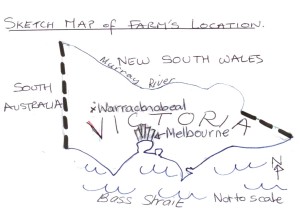 SKETCH MAP OF FARM'S LOCATION.
NEW SOUTH WALES
Murray River
SOUTH
AUSTRALIA
xWarracknabeal
VICTORIA
Melbourne
N
Bass Strait
Not to scale